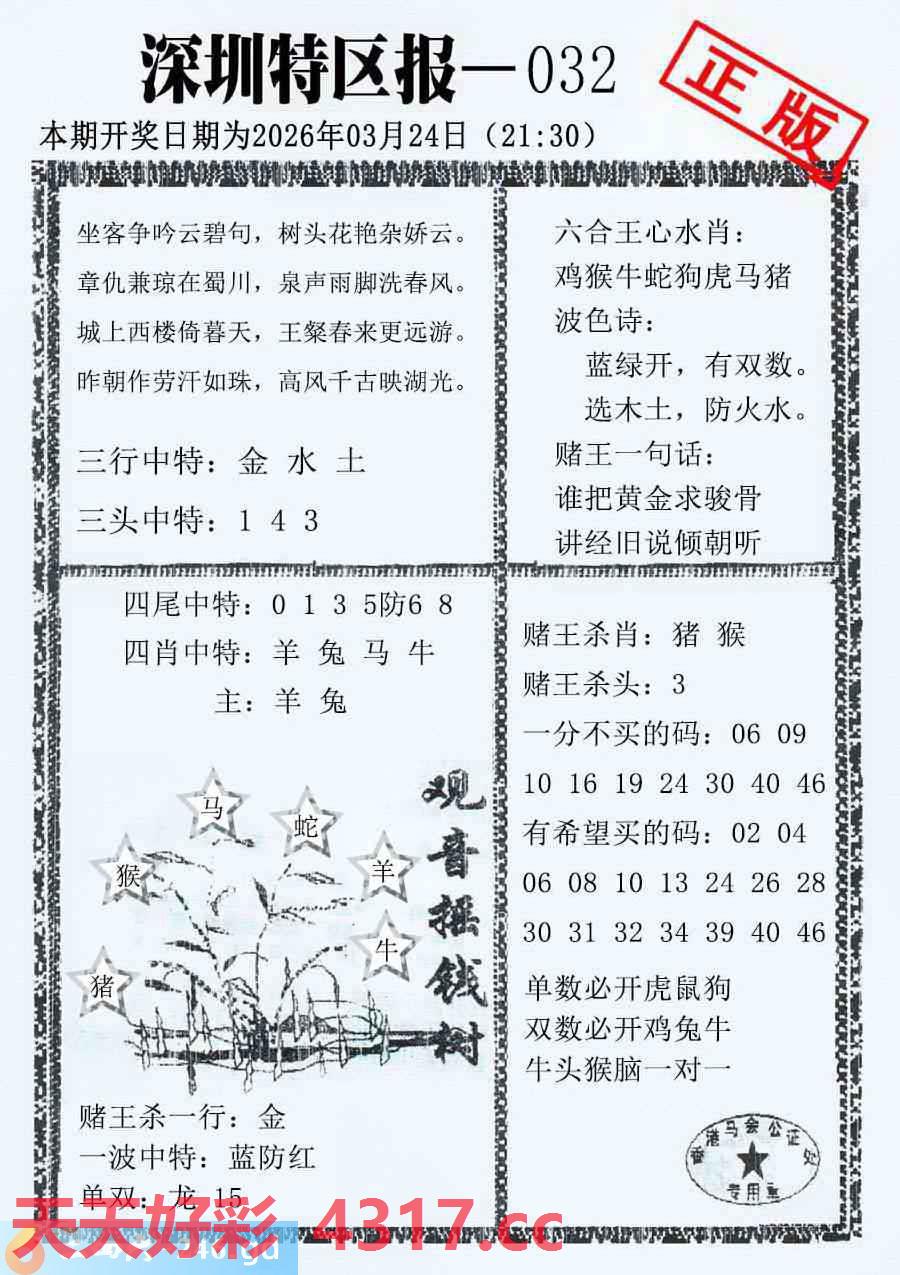 深圳特区报—032
正版
本期开奖日期为2026年03月24日（21:30）
坐客争吟云碧句，树头花艳杂娇云。
章仇兼琼在蜀川，泉声雨脚洗春风。
城上西楼倚暮天，王粲春来更远游。
昨朝作劳汗如珠，高风千古映湖光。
三行中特：金 水 土
三头中特：1 4 3
六合王心水肖：
鸡猴牛蛇狗虎马猪
波色诗：
蓝绿开，有双数。
选木土，防火水。
赌王一句话：
谁把黄金求骏骨
讲经旧说倾朝听
四尾中特：0 1 3 5防6 8
四肖中特：羊 兔 马 牛
主：羊 兔
观音摇钱树
马
蛇
猴
羊
牛
猪
赌王杀一行：金
一波中特：蓝防红
单双：龙 15
赌王杀肖：猪 猴
赌王杀头：3
一分不买的码：06 09
10 16 19 24 30 40 46
有希望买的码：02 04
06 08 10 13 24 26 28
30 31 32 34 39 40 46
单数必开虎鼠狗
双数必开鸡兔牛
牛头猴脑一对一
香港马会公证处
专用章
天天好彩 4317.cc